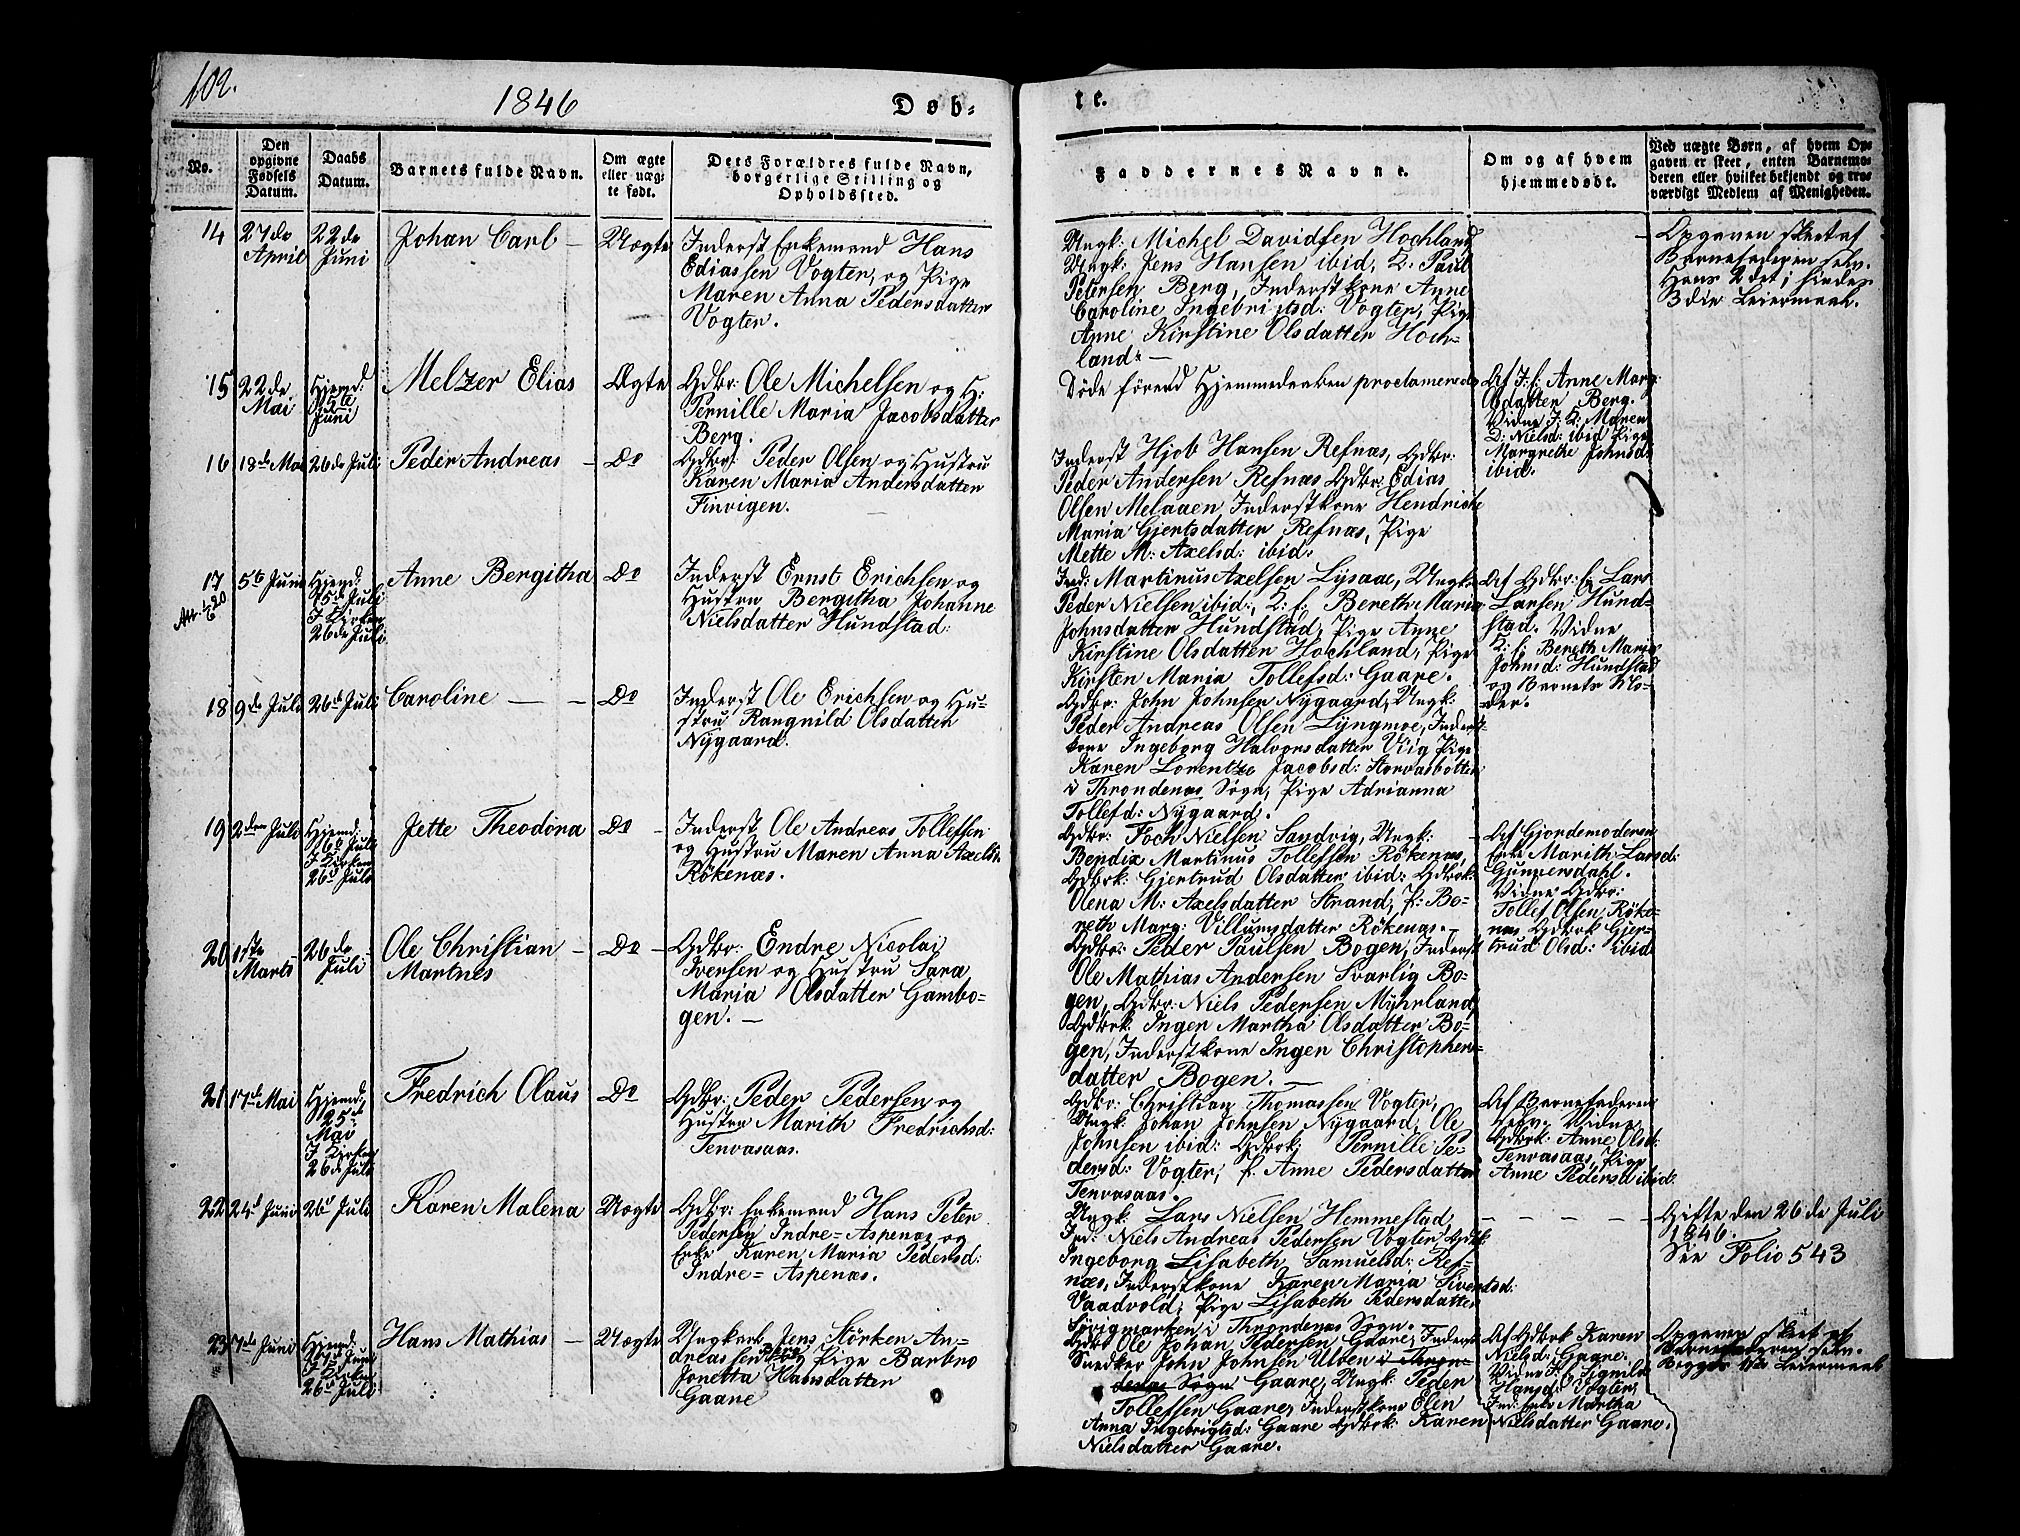 102.
1846
Døb-
te.
No.
Den
opgivne
Fødsels
Datum.
Daabs
Datum.
Barnets fulde Navn.
Om ægte
eller uæg-
te født.
Dets Forældres fulde Navn,
borgerlige Stilling og
Opholdssted.
Faddernes Navne.
Om og af hvem
hjemmedøbt.
Ved uægte Børn, af hvem Op-
gaven er skeet, enten Barnemo-
deren eller hvilket bekjendt og tro-
værdigt Medlem af Menigheden.
14
27de
April
22de
Juni
Johan Carl —
Uægte
Inderst Enkemand Hans
Ediassen Vogter, og Pige
Maren Anna Pedersdatter
Vogter.
Ungk: Michel Davidsen Hochland
Ungk: Jens Hansen ibid, K: Paul
Petersen Berg, Inderstkone Anne
Caroline Ingebrigtsd: Vogter, Pige
Anne Kirstine Olsdatter Hoch-
land. —
Opgaven skeet af
Barnefaderen selv.
Hans 2det, hindes
3die Leiermaal.
15
22de
Mai
Hjemd:
5te
Juni
Melzer Elias
Ægte
Gdbr: Ole Michelsen og H:
Pernille Maria Jacobsdatter
Berg.
Døde førend Hjemmedaaben proclameredes
Af J. f. Anne Marg:
Olsdatter Berg.
Vidne J. K. Maren
D: Nielsd: ibid Pige
Margrethe Johnsd:
ibid.
16
18de Mai
26de Juli
Peder Andreas —
Do
Gdbr: Peder Olsen og Hustru
Karen Maria Andersdatter
Finvigen.
Inderst Hjob Hansen Refnæs, Gdbr:
Peder Andersen Refnæs Gdbr: Edias
Olsen Melaaen Inderstkone Hendrikke
Maria Gjertsdatter Refnæs, Pige
Mette M: Axelsd: ibid.
17
5te Juni
Hjemd:
5de Juli
I Kirken
26de Juli
Anne Bergitha
Do
Inderst Ernst Erichsen og
Hustru Bergitha Johanne
Nielsdatter Hundstad.
Ind: Martinus Axelsen Lysaae, Ungk:
Peder Nielsen ibid:, K: f: Bereth Maria
Johnsdatter Hundstad, Pige Anne
Kirstine Olsdatter Hochland, Pige
Kirsten Maria Tollefsd: Gaare.
Af Gdbr: Lars
Larsen Hund-
stad. Vidne
K: f: Bereth Maria
Johnsd: Hundstad
og Barnets Mo-
der.
18
9de Juli
26de Juli
Caroline — —
Do
Inderst Ole Erichsen og Hu-
stru Rangnild Olsdatter
Nygaard.
Gdbr: John Johnsen Nygaard, Ungk:
Peder Andreas Olsen Lyngmoe, Inderst-
kone Ingeborg Halvorsdatter Viig Pige
Karen Lorentze Jacobsd: Storvasbotten
i Throndenæs Sogn, Pige Adrianna
Tollefd: Nygaard.
19
2den Juli
Hjemd:
6te Juli
I Kirken
26de Juli
Jette Theodora
Do —
Inderst Ole Andreas Tollefsen
og Hustru Maren Anna Axelsd:
Rökenæs.
Gdbr: Foch Nielsen Sandvig, Ungk:
Bendix Martinus Tollefsen Rökenæs,
Gdbrk: Gjertrud Olsdatter ibid: Gdbrk:
Olena M: Axelsdatter Strand, f: Be-
reth Marg: Villumsdatter Rökenæs. —
Af Gjordemoderen
Enke Marith Larsd:
Gunnersdahl.
Vidne Gdbr:
Tollef Olsen Röke-
næs, Gdbrk Gjer-
trud Olsd: ibid
20
1ste
Marts
26de
Juli
Ole Christian —
Martnes
Do —
Gdbr: Endre Nicolai
Iversen og Hustru Sara
Maria Olsdatter Gambo-
gen. —
Gdbr: Peder Paulsen Bogen, Inderst
Ole Mathias Andersen Svarlig Bo-
gen, Gdbr: Niels Pedersen Muhrland,
Gdbrk: Inger Martha Olsdatter Bo-
gen, Inderstkone Ingen Christophers-
datter Bogen. —
21
17de Mai
Hjemd:
25de
Mai
I Kirken
26de Juli
Fredrich Olaus
Do
Gdbr: Peder Pedersen og
Hustru Marith Fredrichsd:
Tenvasaas.
Gdbr: Christian Thomassen Vogter,
Ungk: Johan Johnsen Nygaard, Ole
Johnsen ibid: Gdbrk: Pernille Pe-
dersd: Vogter, f. Anne Pedersdatter
Tenvasaas.
Af Barnefaderen
selv. Vidne
Gdbrk: Anne Olsd:
Tenvasaas, Pige
Anne Pedersd ibid.
22
24de Juni
26de Juli
Karen Malena
Uægte
Gdbr: Enkemand Hans Peter
Pedersen Indre=Aspenæs og
Enke Karen Maria Pedersd:
Indre=Aspenæs.
Ungk: Lars Nielsen Hemmestad,
Ind: Niels Andreas Pedersen Vogter, Gdbrk
Ingeborg Lisabeth Samuelsd: Ref-
næs, Inderstkone Karen Maria Sivertsd:
Vaadvold, Pige Lisabeth Pedersdatter
Sörvigmarken i Throndenæs Sogn. —
Gifte den 26de Juli
1846.
See Folio 543
23
7de Juni
Hjemd:
I Kirken
26de Juli
Hans Mathias —
Uægte
Ungkarl Jens Störken An-
dreassen og Pige Barbro
Jonetta Hansdatter
Gaare
Gdbr Ole Johan Pedersen Gaare, Inderst
Snedker John Johnsen Ulven i Thron-
denæs Sogn Gaare, Ungk: Peder
Tollefsen Gaare, Inderstkone Olen
Anna Ingebrigtsd: Gaare Gdbrk: Karen
Nielsdatter Gaare.
Af Gdbrk Karen
Nielsd: Gaare.
Hansd: Vogter,
Martha
Nielsdatter Gaare.
Opgaven skeet af
Barnefaderen selv.
Begges 1ste Leiermaal